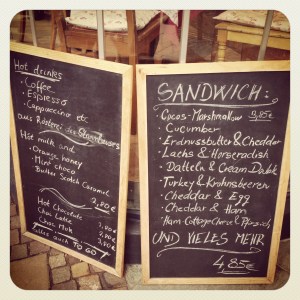 Hot drinks
• Coffee
• Espresso
• Cappuccino etc
aus Rösterei der
Hot milk and
• Orange honey
• Mint choco
Butter Scotch Caramel
3,80€
Hot Chocolate
Chai Latte 3,80€
Chai Milk 3,00€
alles auch TO GO
SANDWICH:
• Cocos-Marshmallow 3,85€
• Cucumber
• Erdnussbutter & Cheddar
• Lachs & Horseradish
• Datteln & Cream
• Turkey & Krohnsbeeren
• Cheddar & Egg
• Cheddar & Ham
• Ham-Cottage
UND VIELES MEHR
4,85€